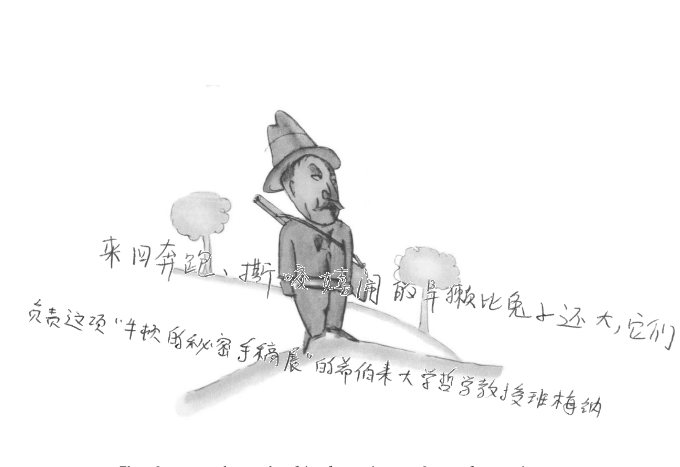 来回奔跑、撕咬嬉闹的旱獭比兔子还大,它们
负责这项“牛顿的秘密手稿展”的希伯来大学哲学教授班梅纳